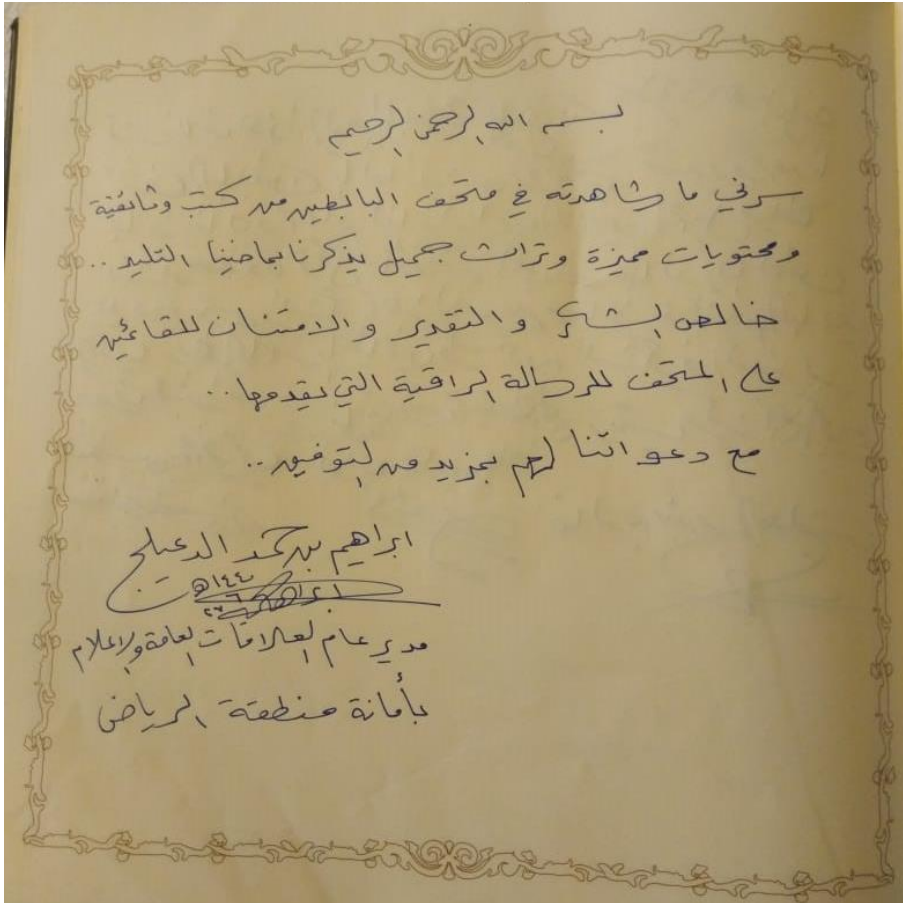 بسم الله الرحمن الرحيم
سرني ما شاهدته في متحف البابطين من كتب وثائقية
ومحتويات مميزة وتراث جميل يذكرنا بماضينا التليد ..
خالص الشكر و التقدير و الامتنان للقائمين
على المتحف للرسالة الراقية التي يقدمها ..
مع دعواتنا لهم بمزيد من التوفيق ..
ابراهيم بن حمد الدعيلج
مدير عام العلاقات العامة والاعلام
بأمانة منطقة الرياض